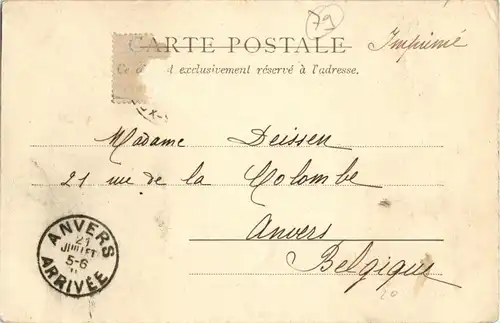 79
CARTE POSTALE
Imprimé
Ce côté est exclusivement réservé à l'adresse.
Madame Deissen
21 rue de la Colombe
Anvers
Belgique
20
ANVERS
21
JUILLET
5-6
ARRIVÉE